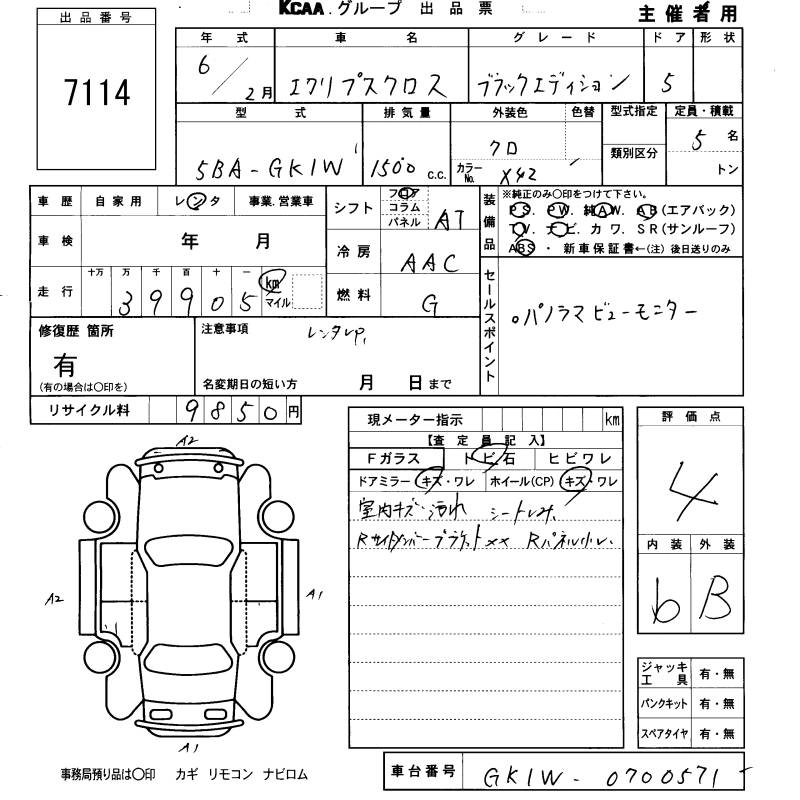 KCAA.グループ 出品票
主催者用
出品番号
7114
年式 車名 グレード ドア 形状
6/2月 エクリプスクロス ブラックエディション 5
型式 排気量 外装色 色替 型式指定 定員・積載
5BA-GK1W 1500 c.c. クロ カラーNo. X42 類別区分 5名
トン
車歴 自家用 レンタ 事業.営業車
車検 年 月
走行 十万 万 千 百 十 一
39905 km マイル
シフト フロア コラム パネル AT
冷房 AAC
燃料 G
装備品
※純正のみ○印をつけて下さい。
PS. PW. 純AW. AB(エアバック)
TV. ナビ. カワ. SR(サンルーフ)
ABS・新車保証書←(注)後日送りのみ
セールスポイント
○パノラマビューモニター
修復歴 箇所
有
(有の場合は○印を)
注意事項 レンタUP,
名変期日の短い方 月 日まで
リサイクル料 9850円
現メーター指示 km
【査定員記入】
Fガラス トビ石 ヒビワレ
ドアミラー キズ・ワレ ホイール(CP) キズ・ワレ
室内キズ・汚れ シート
Rサイドメンバーブラケット×× Rパネル小
評価点
4
内装 外装
b B
A2
A2
A1
A1
ジャッキ工具 有・無
パンクキット 有・無
スペアタイヤ 有・無
事務局預り品は○印 カギ リモコン ナビロム
車台番号 GK1W-0700571